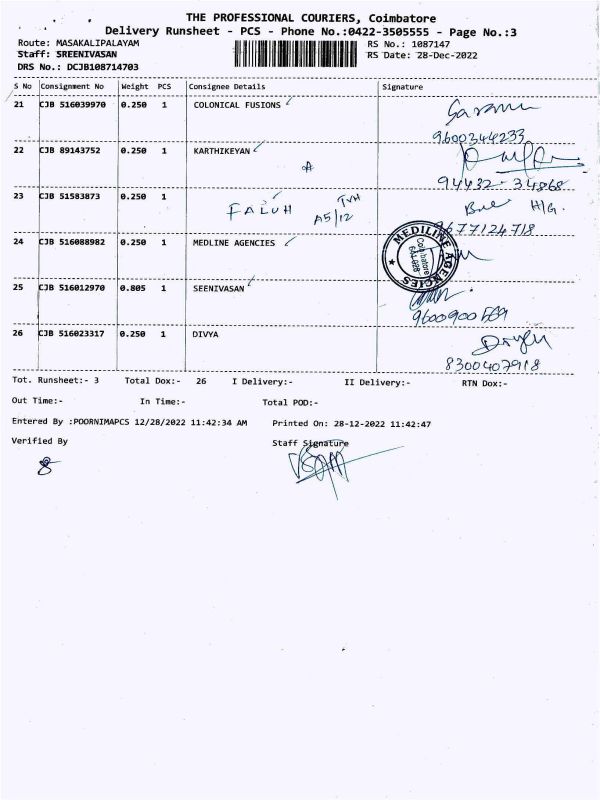 THE PROFESSIONAL COURIERS, Coimbatore
Delivery Runsheet - PCS - Phone No.:0422-3505555 - Page No.:3
Route: MASAKALIPALAYAM RS No.: 1087147
Staff: SREENIVASAN RS Date: 28-Dec-2022
DRS No.: DCJB108714703
S No Consignment No Weight PCS Consignee Details Signature
21 CJB 516039970 0.250 1 COLONICAL FUSIONS
9600344233
22 CJB 89143752 0.250 1 KARTHIKEYAN
94432-34868
23 CJB 51583873 0.250 1 TVH H/G.
FALUH A5/12 9677124718
24 CJB 516088982 0.250 1 MEDLINE AGENCIES MEDILINE AGENCIES Coimbatore
25 CJB 516012970 0.805 1 SEENIVASAN
9600900569
26 CJB 516023317 0.250 1 DIVYA Divya
8300407918
Tot. Runsheet:- 3 Total Dox:- 26 I Delivery:- II Delivery:- RTN Dox:-
Out Time:- In Time:- Total POD:-
Entered By :POORNIMAPCS 12/28/2022 11:42:34 AM Printed On: 28-12-2022 11:42:47
Verified By Staff Signature